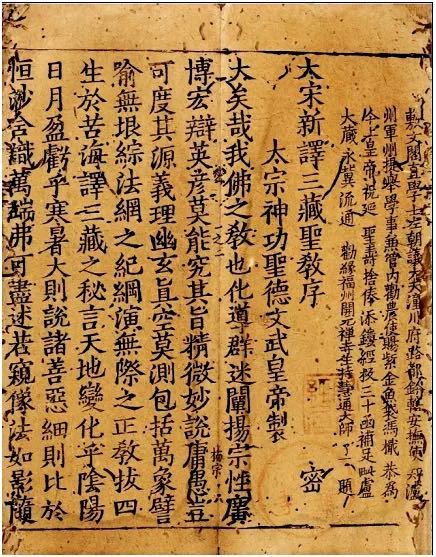 敷文閣直學士左朝議大夫潼川府路都鈐轄安撫使知瀘
州軍州提舉學事兼管內勸農使賜紫金魚袋馮檝恭為
今上皇帝祝延 聖壽捨俸添鏤經板三十函補足毗盧
大藏永冀流通 勸緣福州開元禪寺住持慧通大師 了一 題
大宋新譯三藏聖教序 密
太宗神功聖德文武皇帝製
大矣哉我佛之教也化導群迷闡揚宗性廣
博宏辯英彥莫能究其旨精微妙說庸愚豈
可度其源義理幽玄真空莫測包括萬象譬
喻無垠綜法網之紀綱演無際之正教拔四
生於苦海譯三藏之秘言天地變化乎陰陽
日月盈虧乎寒暑大則說諸善惡細則比於
恒沙含識萬端弗可盡述若窺像法如影隨